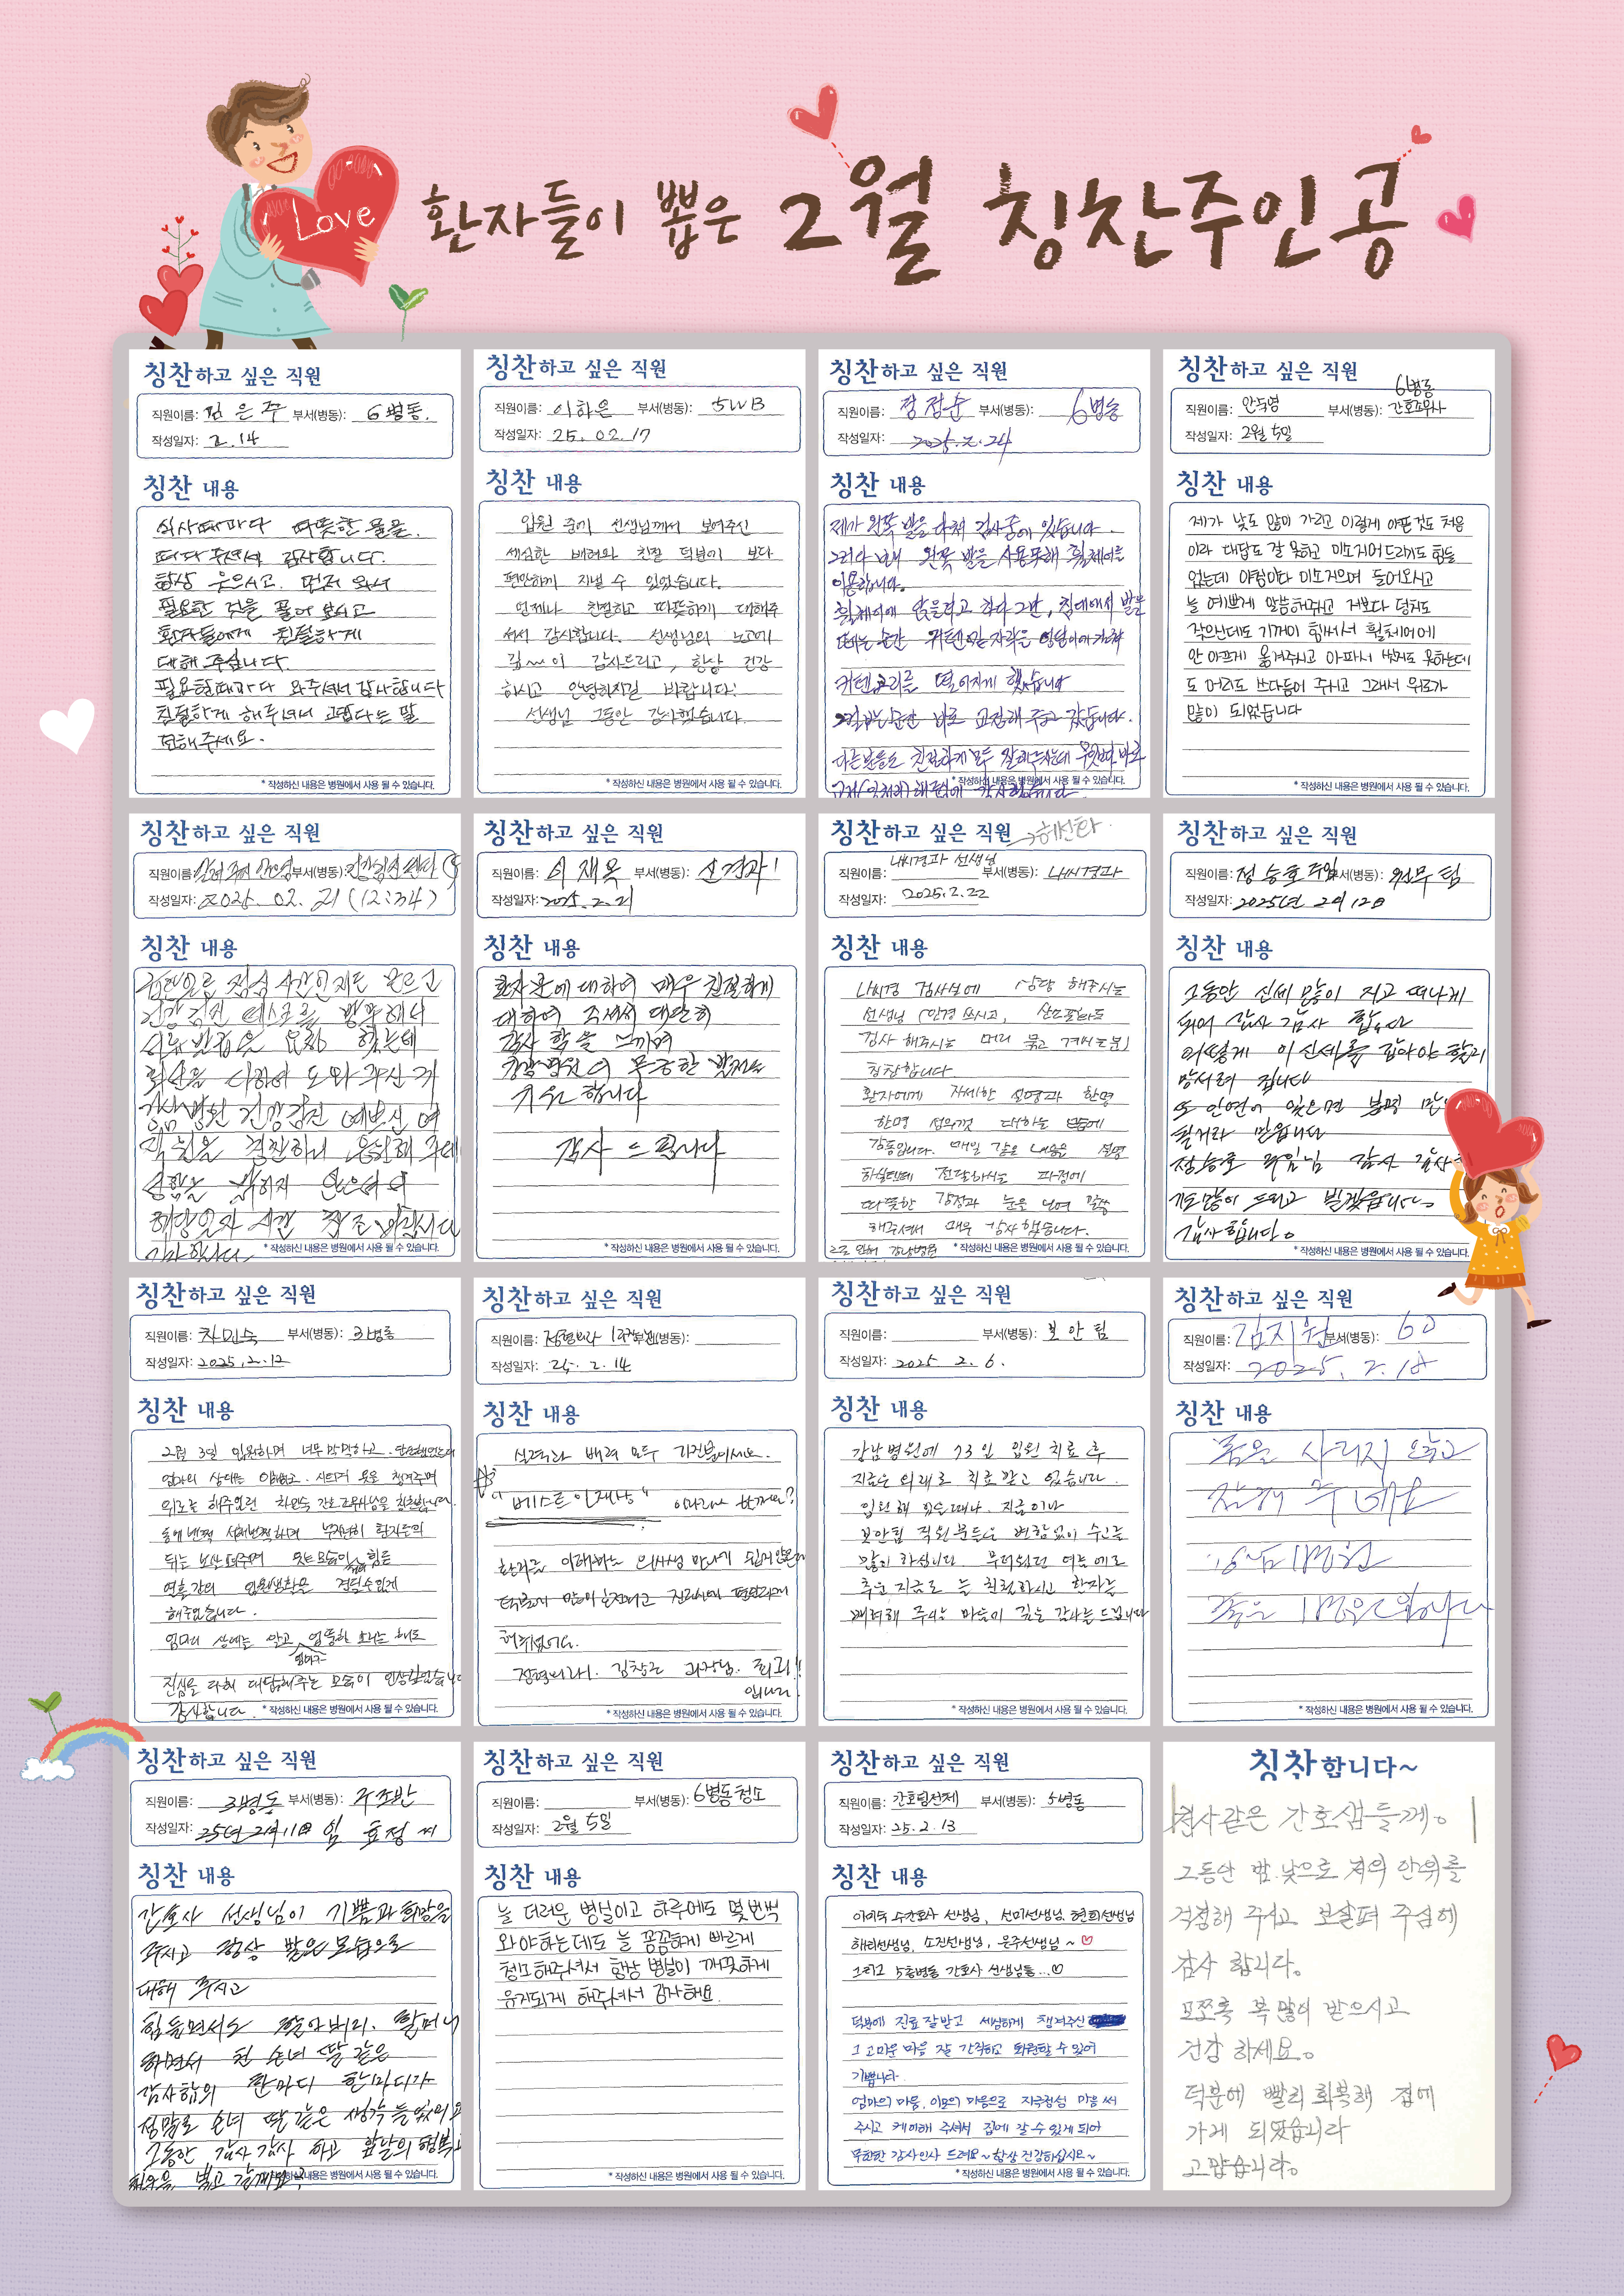 Love
환자들이 뽑은 2월 칭찬주인공
칭찬하고 싶은 직원
직원이름: 김은주 부서(병동): 6병동.
작성일자: 2.14
칭찬 내용
식사때마다 따뜻한 물을
떠다 주셔서 감사합니다.
항상 웃으시고. 먼저 와서
필요한 것을 물어 보시고
환자들에게 친절하게
대해 주십니다.
필요할때마다 와주셔서 감사합니다
친절하게 해주셔서 고맙다는 말
전해주세요.
* 작성하신 내용은 병원에서 사용 될 수 있습니다.
칭찬하고 싶은 직원
직원이름: 이하은 부서(병동): 5WB
작성일자: 25.02.17
칭찬 내용
입원 중에 선생님께서 보여주신
세심한 배려와 친절 덕분에 보다
편안하게 지낼 수 있었습니다.
언제나 친절하고 따뜻하게 대해주
셔서 감사합니다. 선생님의 노고에
깊~이 감사드리고, 항상 건강
하시고 안녕하시길 바랍니다.
선생님 그동안 감사했습니다.
* 작성하신 내용은 병원에서 사용 될 수 있습니다.
칭찬하고 싶은 직원
직원이름: 장점순 부서(병동): 6병동
작성일자: 2025.2.24
칭찬 내용
제가 왼쪽 발을 다쳐 검사중에 있습니다.
그러다 보내 왼쪽 발을 사용못해 휠체어를
이용합니다.
휠체어에 앉을려고 하다 그만, 침대에서 발을
떼는 순간 커텐 자락을
커텐고리를 떨어지게 했습니다
순간 바로 고정해 주고 갔습니다.
다른분들도 친절하게 모두 잘해주시는데
감사했습니다
* 작성하신 내용은 병원에서 사용 될 수 있습니다.
칭찬하고 싶은 직원
6병동
직원이름: 안숙영 부서(병동): 간호조무사
작성일자: 2월 5일
칭찬 내용
제가 낯도 많이 가리고 이렇게 아픈것도 처음
이라 대답도 잘 못하고 미소지어드리기도 힘들
었는데 아침마다 미소지으며 들어오시고
늘 예쁘게 말씀해주시고 저보다 덩치도
작으신데도 기꺼이 힘써서 휠체어에
안 아프게 옮겨주시고 아파서 씻지도 못하는데
도 머리도 쓰다듬어 주시고 그래서 위로가
많이 되었습니다
* 작성하신 내용은 병원에서 사용 될 수 있습니다.
칭찬하고 싶은 직원
직원이름: 부서(병동):
작성일자: 2025.02.21 (12:34)
칭찬 내용
점심 시간인지도 모르고
건강검진 데스크를 방문해서
서류 발급을 요청 했는데
최선을 다하여 도와 주신 게
강남병원 건강검진 예쁘신 여
직원을 칭찬하니
성함을 밝히지 않으셔서
해당일자 시간 참조 바랍니다
감사합니다
* 작성하신 내용은 병원에서 사용 될 수 있습니다.
칭찬하고 싶은 직원
직원이름: 이재옥 부서(병동): 신경과!
작성일자: 2025.2.21
칭찬 내용
환자분에 대하여 매우 친절하게
대하여 주셔서 대단히
감사 함을 느끼며
강남병원의 무궁한 발전을
기원 합니다
감사 드립니다
* 작성하신 내용은 병원에서 사용 될 수 있습니다.
칭찬하고 싶은 직원 →허선화
직원이름: 내시경과 선생님 부서(병동): 내시경과
작성일자: 2025.2.22
칭찬 내용
내시경 검사실에 상담 해주시는
선생님 (안경 쓰시고, 산소포화도
검사 해주시는 머리 묶고 계시는분)
칭찬합니다
환자에게 자세한 설명과 한명
한명 성의껏 대하는 모습에
감동입니다. 매일 같은 내용을 설명
하실텐데 전달하시는 과정에
따뜻한 감정과 눈을 보며 말씀
해주셔서 매우 감사했습니다.
그로 인해 강남병원
* 작성하신 내용은 병원에서 사용 될 수 있습니다.
칭찬하고 싶은 직원
직원이름: 정승호 주임 부서(병동): 원무팀
작성일자: 2025년 2월 12일
칭찬 내용
그동안 신세 많이 지고 떠나게
되어 감사 감사 합니다
어떻게 이 신세를 갚아야 할지
망서려 집니다
또 인연이 있으면 분명
될거라 믿읍니다
정승호 주임님 감사 감사
기도많이 드리고 빌겠읍니다
감사합니다.
* 작성하신 내용은 병원에서 사용 될 수 있습니다.
칭찬하고 싶은 직원
직원이름: 차민숙 부서(병동): 3병동
작성일자: 2025.2.12
칭찬 내용
2월 3일 입원하며 너무 막막하고.
엄마의 상태는 시트며 옷을 챙겨주며
위로를 해주었던 차민숙 간호조무사님을 칭찬합니다.
환자들의
뒤를 보살펴주며 웃는모습이 힘든
열흘간의 입원생활을 견딜수있게
해주었습니다.
엄마의 상태를 알고 엉뚱한 소리를 해도
진심을 다해 대답해주는 모습이 인상깊었습니다
감사합니다.
* 작성하신 내용은 병원에서 사용 될 수 있습니다.
칭찬하고 싶은 직원
직원이름: 정형외과 부서(병동):
작성일자: 25.2.14
칭찬 내용
실력과 배려 모두 가진분이세요.
"베스트 인재상" 이라고 할까요?
환자를 이해하는 의사선생 만나기 쉽지않은데
덕분에 많이 호전되고 편안하게
해주셨어요.
정형외과. 김창근 과장님. 최고!!
입니다!
* 작성하신 내용은 병원에서 사용 될 수 있습니다.
칭찬하고 싶은 직원
직원이름: 부서(병동): 보안팀
작성일자: 2025 2.6.
칭찬 내용
강남병원에 73일 입원 치료 후
지금은 외래로 치료 받고 있습니다.
입원 해 있을때나. 지금이나
보안팀 직원분들은 변함없이 수고를
많이 하십니다 무더웠던 여름에도
추운 지금도 늘 친절하시고 환자를
배려해 주시는 마음에 깊은 감사를 드립니다
* 작성하신 내용은 병원에서 사용 될 수 있습니다.
칭찬하고 싶은 직원
직원이름: 김지원 부서(병동): 60
작성일자: 2025.2.18
칭찬 내용
몸을 사리지 않고
잘해 주네요
강남병원
좋은 병원
* 작성하신 내용은 병원에서 사용 될 수 있습니다.
칭찬하고 싶은 직원
직원이름: 3병동 부서(병동): 주조반
작성일자: 25년 2월 11일 임 효정 씨
칭찬 내용
간호사 선생님이 기쁨과 희망을
주시고 항상 밝은 모습으로
대해 주시고
힘들면서도 할아버지. 할머니
하면서 친 손녀 딸 같은
감사함의 한마디 한마디가
정말로 손녀 딸 같은 생각
그동안 감사 감사 하고 앞날의 행복
* 작성하신 내용은 병원에서 사용 될 수 있습니다.
칭찬하고 싶은 직원
직원이름: 부서(병동): 6병동 청소
작성일자: 2월 5일
칭찬 내용
늘 더러운 병실이고 하루에도 몇번씩
와야하는데도 늘 꼼꼼하게 빠르게
청소해주셔서 항상 병실이 깨끗하게
유지되게 해주셔서 감사해요.
* 작성하신 내용은 병원에서 사용 될 수 있습니다.
칭찬하고 싶은 직원
직원이름: 간호팀전체 부서(병동): 5병동
작성일자: 25.2.13
칭찬 내용
수간호사 선생님, 선미선생님, 현희선생님
해리선생님, 소진선생님, 은주선생님~♡
그리고 5층병동 간호사 선생님들...♡
덕분에 진료 잘받고 세심하게 챙겨주신
그 고마운 마음 잘 간직하고 퇴원할 수 있어
기쁩니다.
엄마의 마음, 이모의 마음으로 지극정성 마음 써
주시고 케어해 주셔서 집에 갈 수 있게 되어
무한한 감사인사 드려요~항상 건강하십시요~
* 작성하신 내용은 병원에서 사용 될 수 있습니다.
칭찬합니다~
천사같은 간호샘들께.
그동안 밤.낮으로 저의 안위를
걱정해 주시고 보살펴 주심에
감사 합니다.
모쪼록 복 많이 받으시고
건강 하세요.
덕분에 빨리 회복해 집에
가게 되었습니다
고맙습니다.